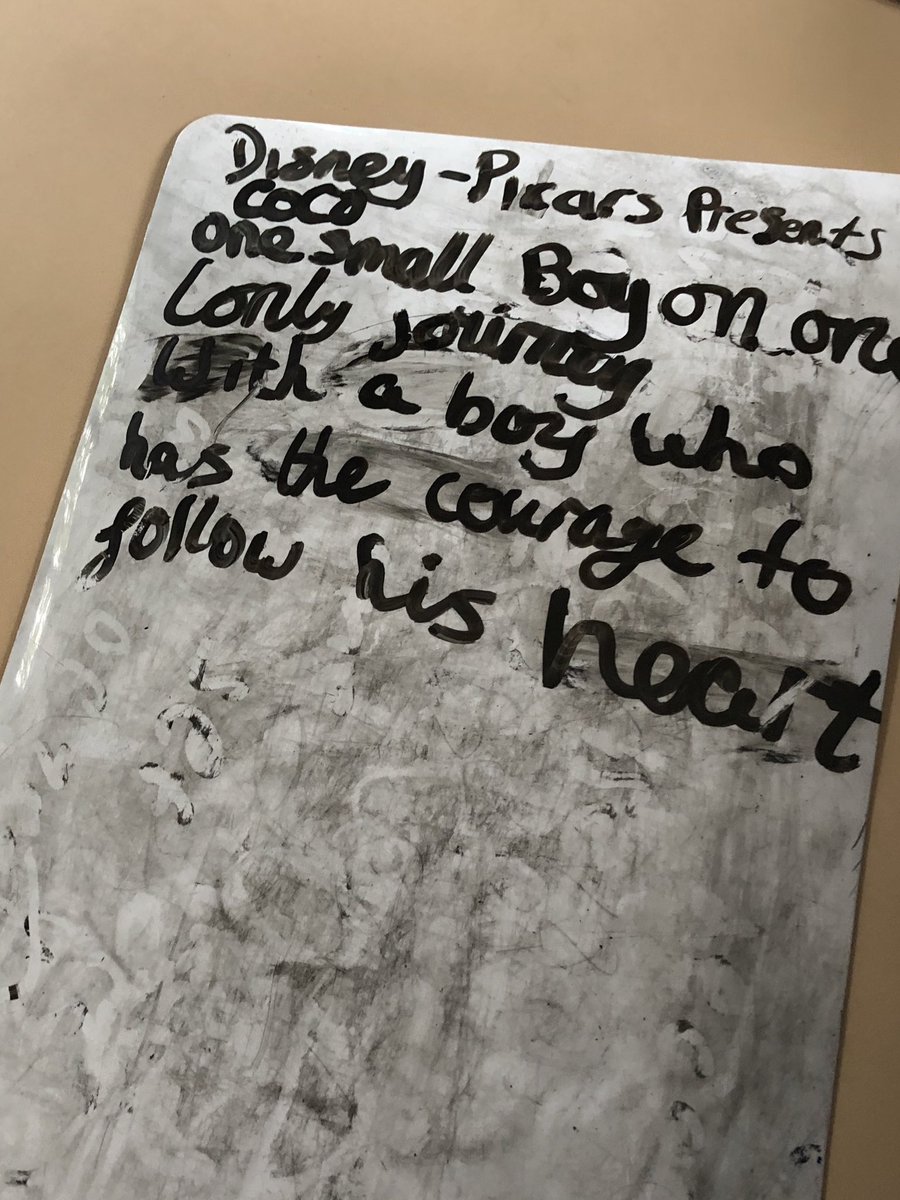 Disney-Pixars Presents
coco
one small Boy on one
lonly journey
With a boy who
has the courage to
follow his heart